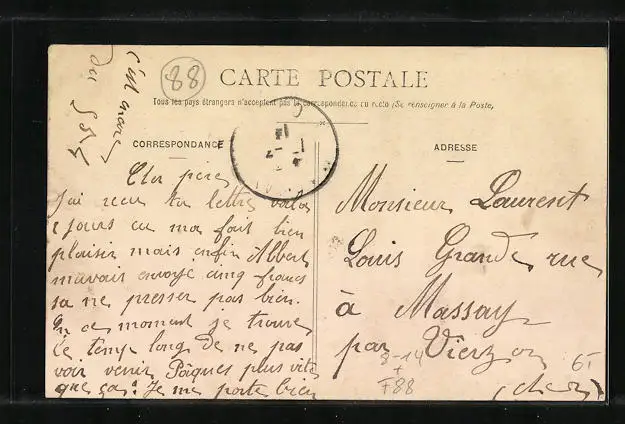 88
CARTE POSTALE
Tous les pays étrangers n'acceptent pas la correspondance au recto (Se renseigner à la Poste)
CORRESPONDANCE
ADRESSE
Cher père
J'ai recu ta lettre voila
jours ca ma fait bien
plaisir mais enfin Albert
mavait envoyé cinq francs
sa ne presser pas bien.
En ce moment je trouve
le temp long de ne pas
voir venir Pâques plus vite
que ça. Je me porte bien
Monsieur Laurent
Louis Grande rue
à Massay
par Vierzon
(cher)
8-14
+
F88